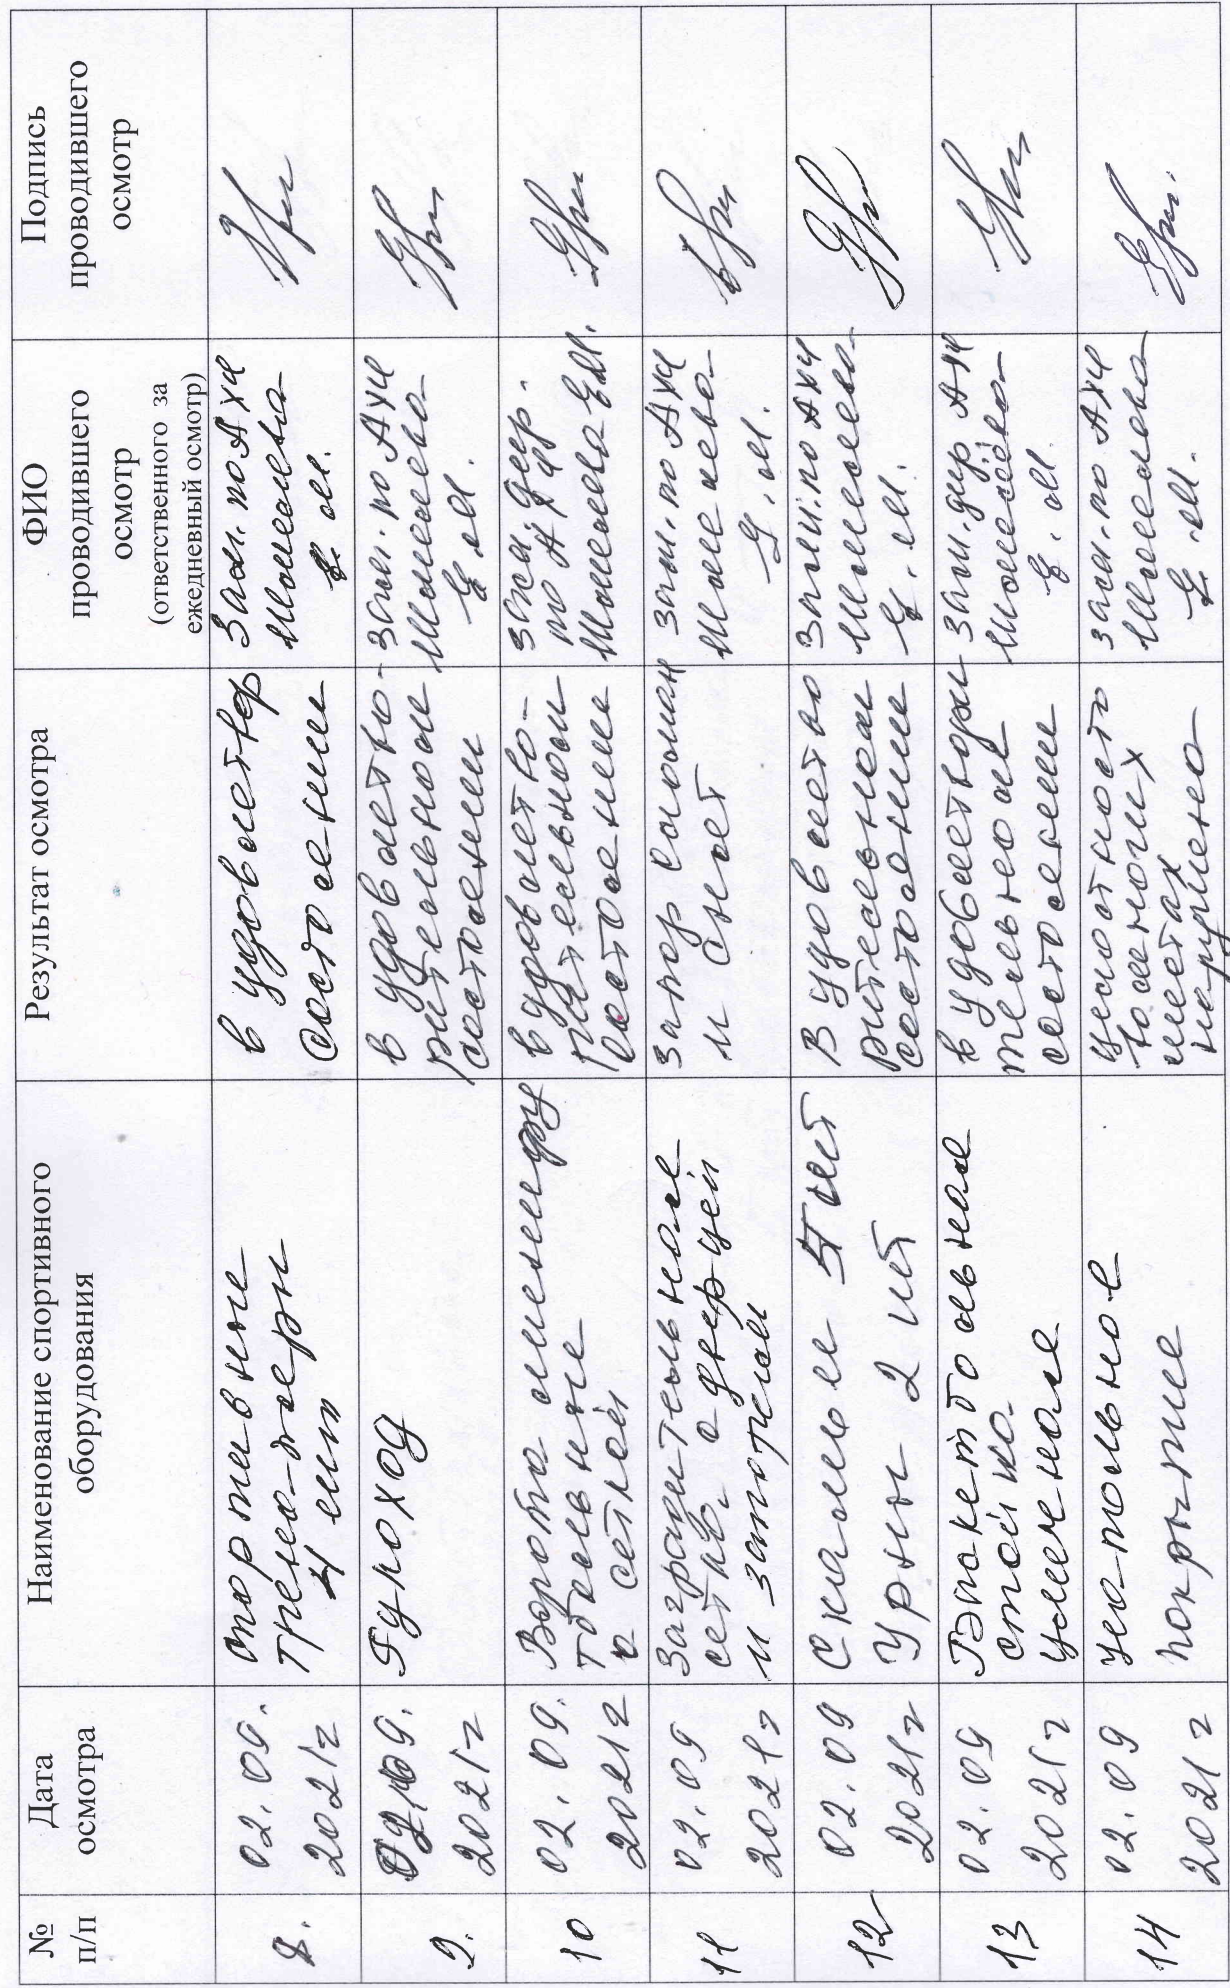 №
п/п
Дата
осмотра
Наименование спортивного
оборудования
Результат осмотра
ФИО
проводившего
осмотр
(ответственного за
ежедневный осмотр)
Подпись
проводившего
осмотр
8.
02.09.
2021г
спортивные
тренажеры
4 шт
в удовлетвор
состоянии
Зам. по АХЧ
Е.М.
9.
02.09.
2021г
Рукоход
в удовлетво-
рительном
состоянии
зам. по АХЧ
Е.М.
10
02.09.
2021г
Ворота минифу
тбольные
с сеткой
в удовлетво-
рительном
состоянии
зам. дир.
по АХЧ
Е.М.
11
02.09
2021г
Заградительная
сетка с дверцей
и запором
запор сломан
и снят
зам. по АХЧ
Е.М.
12
02.09
2021г
Скамьи 5 шт
Урны 2 шт
В удовлетво
рительном
состоянии
Зам. по АХЧ
Е.М.
13
02.09
2021г
Баскетбольная
стойка
уличная
в удовлетвори
тельном
состоянии
зам. дир АХЧ
Е.М.
14
02.09
2021г
напольное
покрытие
целостность
в многих
местах
нарушена
зам. по АХЧ
Е.М.